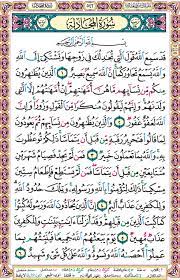 سُورَةُ المُجَادلة
بِسْمِ اللَّهِ الرَّحْمَنِ الرَّحِيمِ
قَدْ سَمِعَ اللَّهُ قَوْلَ الَّتِي تُجَادِلُكَ فِي زَوْجِهَا وَتَشْتَكِي إِلَى
اللَّهِ وَاللَّهُ يَسْمَعُ تَحَاوُرَكُمَا إِنَّ اللَّهَ سَمِيعٌ بَصِيرٌ ١ الَّذِينَ يُظَاهِرُونَ
مِنْكُمْ مِنْ نِسَائِهِمْ مَا هُنَّ أُمَّهَاتِهِمْ إِنْ أُمَّهَاتُهُمْ إِلَّا اللَّائِي
وَلَدْنَهُمْ وَإِنَّهُمْ لَيَقُولُونَ مُنْكَرًا مِنَ الْقَوْلِ وَزُورًا وَإِنَّ اللَّهَ
لَعَفُوٌّ غَفُورٌ ٢ وَالَّذِينَ يُظَاهِرُونَ مِنْ نِسَائِهِمْ ثُمَّ يَعُودُونَ
لِمَا قَالُوا فَتَحْرِيرُ رَقَبَةٍ مِنْ قَبْلِ أَنْ يَتَمَاسَّا ذَلِكُمْ تُوعَظُونَ
بِهِ وَاللَّهُ بِمَا تَعْمَلُونَ خَبِيرٌ ٣ فَمَنْ لَمْ يَجِدْ فَصِيَامُ شَهْرَيْنِ
مُتَتَابِعَيْنِ مِنْ قَبْلِ أَنْ يَتَمَاسَّا فَمَنْ لَمْ يَسْتَطِعْ فَإِطْعَامُ سِتِّينَ
مِسْكِينًا ذَلِكَ لِتُؤْمِنُوا بِاللَّهِ وَرَسُولِهِ وَتِلْكَ حُدُودُ اللَّهِ
وَلِلْكَافِرِينَ عَذَابٌ أَلِيمٌ ٤ إِنَّ الَّذِينَ يُحَادُّونَ اللَّهَ وَرَسُولَهُ
كُبِتُوا كَمَا كُبِتَ الَّذِينَ مِنْ قَبْلِهِمْ وَقَدْ أَنْزَلْنَا آيَاتٍ بَيِّنَاتٍ وَلِلْكَافِرِينَ
عَذَابٌ مُهِينٌ ٥ يَوْمَ يَبْعَثُهُمُ اللَّهُ جَمِيعًا فَيُنَبِّئُهُمْ بِمَا
عَمِلُوا أَحْصَاهُ اللَّهُ وَنَسُوهُ وَاللَّهُ عَلَى كُلِّ شَيْءٍ شَهِيدٌ ٦